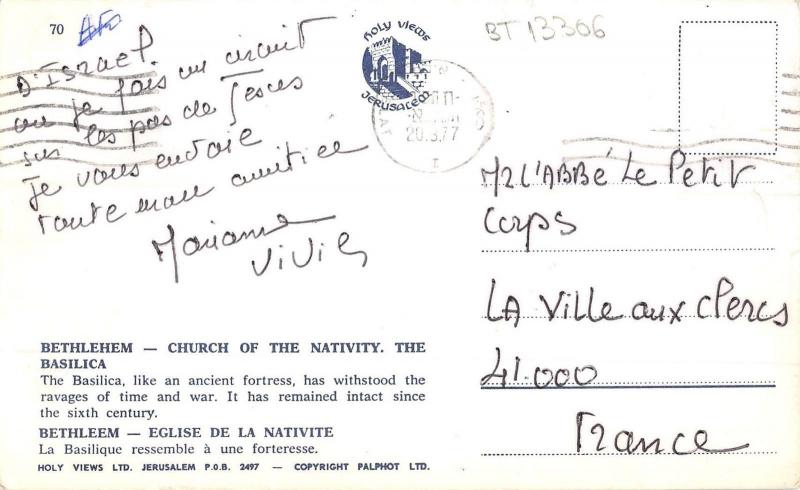 70
D'Israel.
ou je fais un circuit
sur les pas de Jesus
je vous envoie
toute mon amitiée
Marianne
ViViES
BETHLEHEM — CHURCH OF THE NATIVITY. THE
BASILICA
The Basilica, like an ancient fortress, has withstood the
ravages of time and war. It has remained intact since
the sixth century.
BETHLEEM — EGLISE DE LA NATIVITE
La Basilique ressemble à une forteresse.
HOLY VIEWS LTD. JERUSALEM P.O.B. 2497 — COPYRIGHT PALPHOT LTD.
HOLY VIEWS
JERUSALEM
20.3.77
BT 13306
L'ABBÉ Le Petit
Corps
LA Ville aux clercs
41.000
France